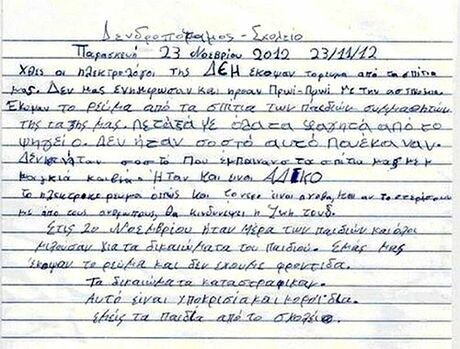 Δενδροπόταμος - Σχολείο
Παρασκευή 23 Νοεβρίου 2012 23/11/12
Χθες οι ηλεκτρολόγοι της ΔΕΗ έκοψαν το ρευμα από τα σπίτια
μας. Δεν μας ενημέρωσαν και ηρθαν Πρωί-Πρωί με την αστυνομια
Εκοψαν το ρεύμα από τα σπίτια των παιδιών συμμαθητών
της ταξης μας. Πετάξαμε όλα τα φαγητά από το
ψηγείο. Δεν ήταν σοστό αυτό που έκαναν.
Δεν ήταν σοστό που έμπαιναν στα σπίτια μας με
μαγκιά και βία. Ήταν και ειναι ΑΔΙΚΟ
Το ηλεκτρικο ρευμα όπως και το νερο ειναι αγαθα και αν το στερίσουμε
με από τους ανθρωπους θα κινδυνέψει η ζωη τους.
Στις 20 Νοεμβρίου ήταν μέρα των παιδιών και όλοι
μιλούσαν για τα δικαιώματα του παιδιού. Εμάς μας
έκοψαν το ρεύμα και δεν έχουμε φροντίδα.
Τα δικαιωματα καταστράφικαν.
Αυτό είναι υποκρισία και κοροϊδία.
εμείς τα παιδιά από το σχολείο.